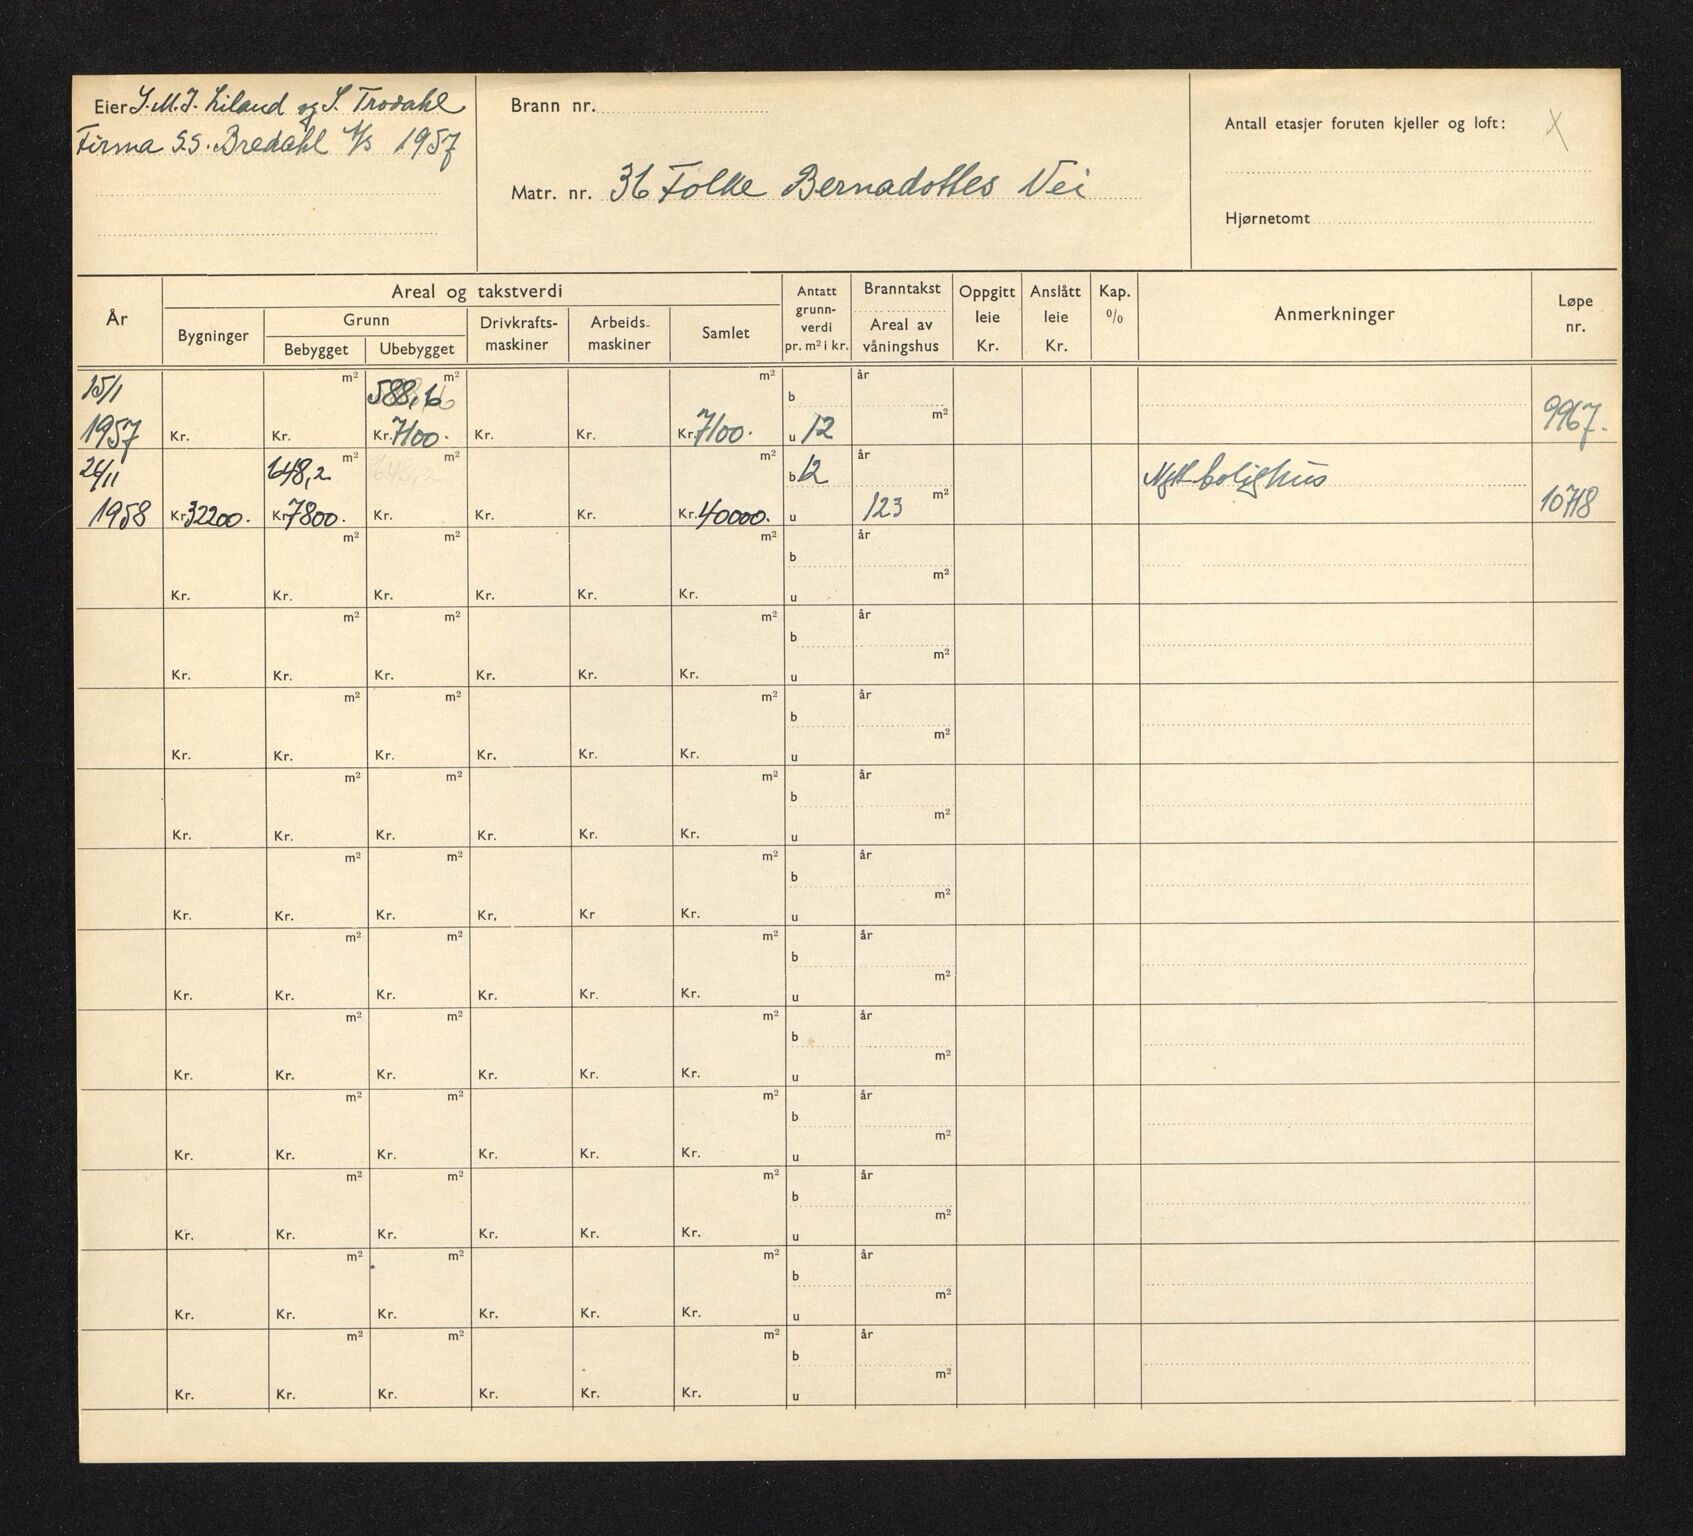 Eier J. M. J. Liland og S. Trodahl
Firma S.S. Bredahl A/s 1957
Brann nr.
Matr. nr. 36 Folke Bernadottes Vei
Antall etasjer foruten kjeller og loft: X
Hjørnetomt
År
Areal og takstverdi
Bygninger
Grunn
Bebygget
Ubebygget
Drivkrafts-
maskiner
Arbeids-
maskiner
Samlet
Antatt
grunn-
verdi
pr. m² i kr.
Branntakst
Areal av
våningshus
Oppgitt
leie
Kr.
Anslått
leie
Kr.
Kap.
%
Anmerkninger
Løpe
nr.
15/1 m² 588,6 m² m² b år
1957 Kr. Kr. Kr. 7100. Kr. Kr. Kr. 7100. u 12 m² 9967.
26/11 648,2 m² 648,2 m² m² b 12 år Nytt bolighus
1958 Kr. 32200. Kr. 7800. Kr. Kr. Kr. Kr. 40000. u 123 m² 10718
m² m² m² b år
Kr. Kr. Kr. Kr. Kr. Kr. u m²
m² m² m² b år
Kr. Kr. Kr. Kr. Kr. Kr. u m²
m² m² m² b år
Kr. Kr. Kr. Kr. Kr. Kr. u m²
m² m² m² b år
Kr. Kr. Kr. Kr. Kr. Kr. u m²
m² m² m² b år
Kr. Kr. Kr. Kr, Kr Kr. u m²
m² m² m² b år
Kr. Kr. Kr. Kr. Kr. Kr. u m²
m² m² m² b år
Kr. Kr. Kr. Kr. Kr. Kr. u m²
m² m² m² b år
Kr. Kr. Kr. Kr. Kr. Kr. u m²
m² m² m² b år
Kr. Kr. Kr. Kr. Kr. Kr. u m²
m² m² m² b år
Kr. Kr. Kr. Kr. Kr. Kr. u m²
m² m² m² b år
Kr. Kr. Kr. Kr. Kr. Kr. u m²